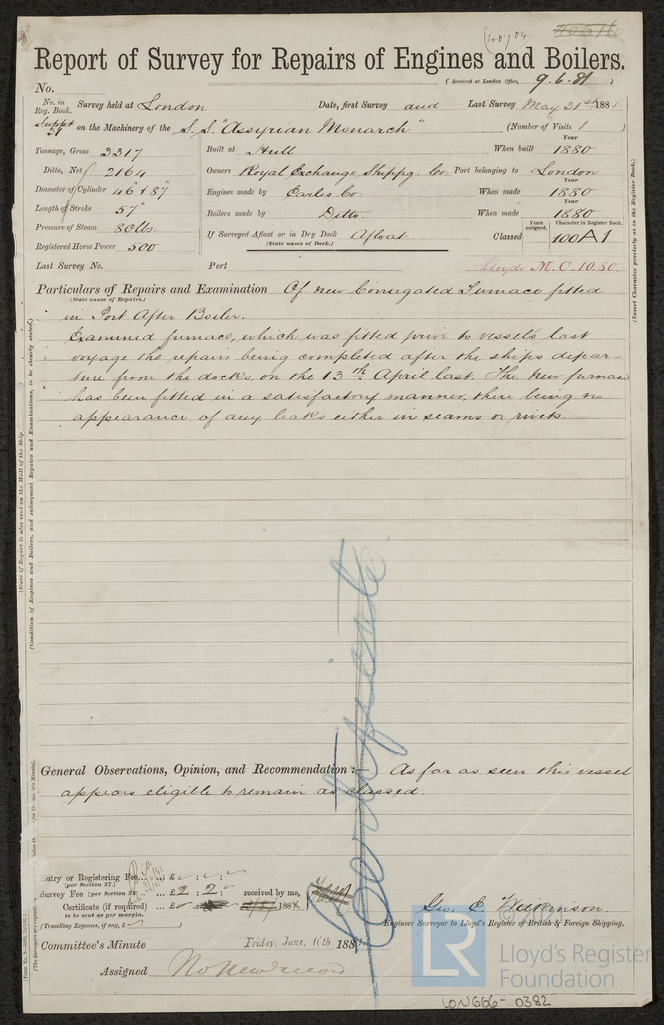 Report of Survey for Repairs of Engines and Boilers.
(Received at London Office, 9.6.81)
No.
No. in Reg. Book. Survey held at London Date, first Survey and Last Survey May 21st 1881
Suppt 54 on the Machinery of the S.S. "Assyrian Monarch" (Number of Visits 1 )
Tonnage, Gross 3317 Built at Hull When built Year 1880
Ditto, Net 2164 Owners Royal Exchange Shippg. Co Port belonging to London
Diameter of Cylinder 46" & 87" Engines made by Earles Co. When made Year 1880
Length of Stroke 57" Boilers made by Ditto. When made Year 1880
Pressure of Steam 80 lbs. If Surveyed Afloat or in Dry Dock Afloat Classed Years assigned. Character in Register Book. 100A1
(State name of Dock.)
Registered Horse Power 500
Last Survey No. Port Lloyds M.C. 10.80.
Particulars of Repairs and Examination Of new Corrugated Furnace fitted
(State cause of Repairs.)
in Port After Boiler.
Examined furnace, which was fitted prior to vessel's last
voyage the repairs being completed after the ships depar-
ture from the docks, on the 13th April last. The new furnace
has been fitted in a satisfactory manner, there being no
appearance of any leaks either in seams or rivets.
(Insert Character precisely as in the Register Book.)
(State if Report is also sent on the Hull of the Ship
(Condition of Engines and Boilers, and subsequent Repairs and Examinations, to be clearly stated.)
Certificate
General Observations, Opinion, and Recommendation:— As far as seen this vessel
appears eligible to remain as classed.
Entry or Registering Fee... £
(per Section 27.)
Survey Fee (per Section 28) £2 : 2 : received by me,
Certificate (if required) £ 188
to be sent as per margin.
(Travelling Expenses, if any, £ )
Geo. E. Wilkinson.
Engineer Surveyor to Lloyd's Register of British & Foreign Shipping.
Committee's Minute Friday, June, 10th 1881
Assigned No New record
LR
Lloyd's Register
Foundation
LON666-0382